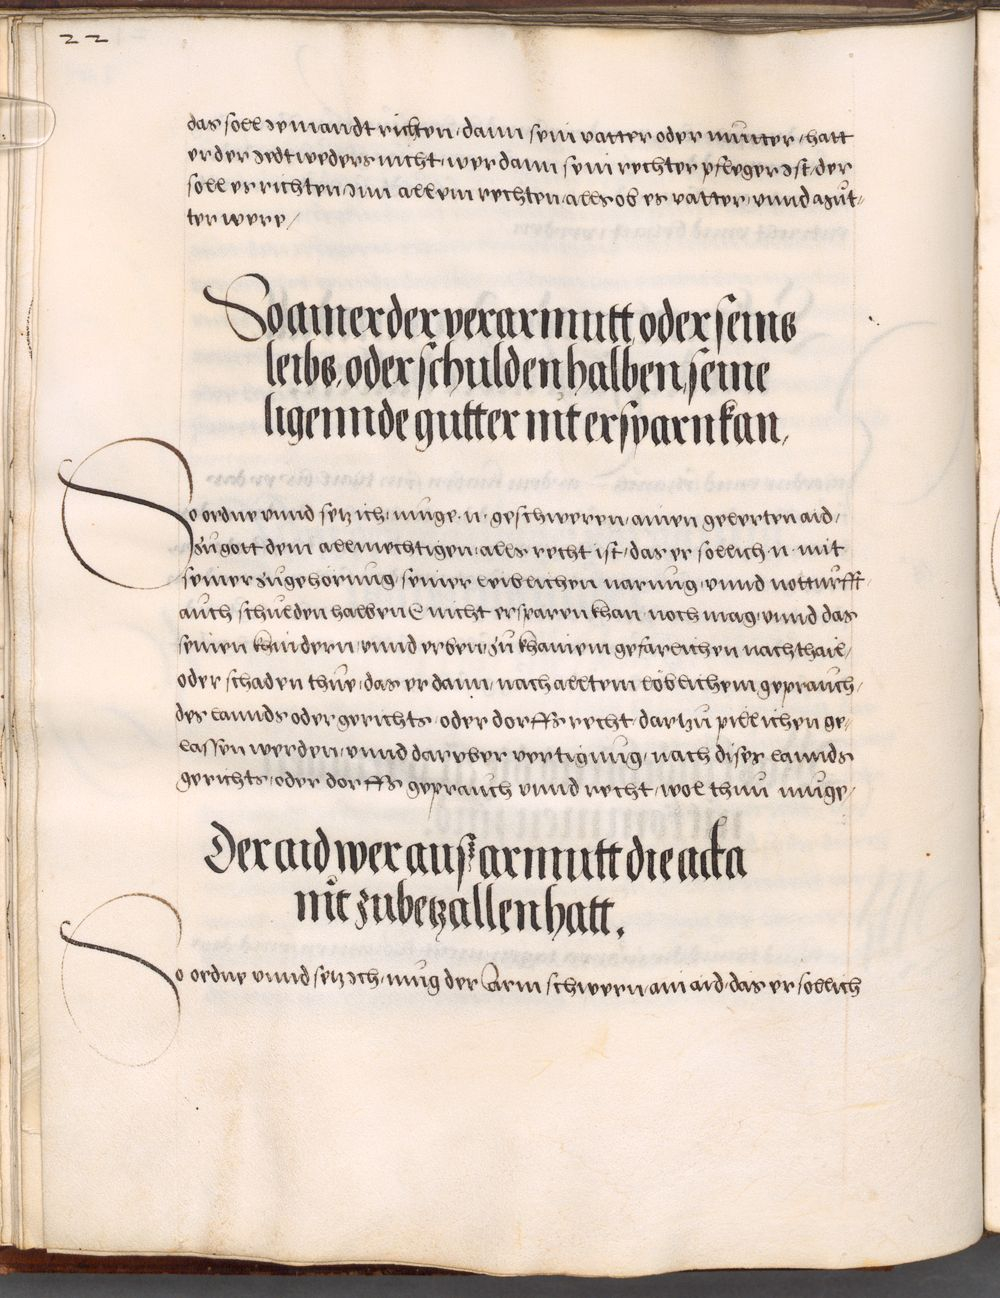 22
das soll Jemandt richten, dann sein vatter oder mutter, hatt
er der Jedtweders nicht, wer dann sein rechter pfleger Ist, der
soll es richten Inn allem rechten, alls ob es vatter, vnnd Mut-
ter were,
So ainer der verarmutt, oder seins
leibs, oder schulden halben, seine
ligennde gutter nit ersparn kan,
So ordne vnnd setz ich, muge .n. geschweren, ainen gelerten aid,
zu gott dem allmechtigen, alls recht ist, das er sollich .n. mit
seiner zugehörung, seiner leiblichen narung, vnnd notturfft,
auch schulden halben nicht ersparen khan, noch mag, vnnd das
seinen khindern, vnnd erben, zu khainem gefarlichen nachthail,
oder schaden thue, das er dann, nach alltem löblichem geprauch,
des lannds oder gerichts, oder dorffs recht, dartzu pillichen ge-
lassen werden, vnnd daryber vertigung, nach dises lannds
gerichts, oder dorffs geprauch vnnd recht, wol thun muge,
Der aid wer ausz armutt die acka
nit zubetzallen hatt.
So ordne vnnd setz Ich, mug der Arm schwern, ain aid, das er sollich